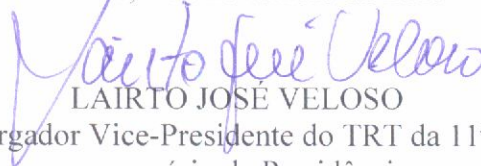 Lairto José Veloso
LAIRTO JOSÉ VELOSO
rgador Vice-Presidente do TRT da 11